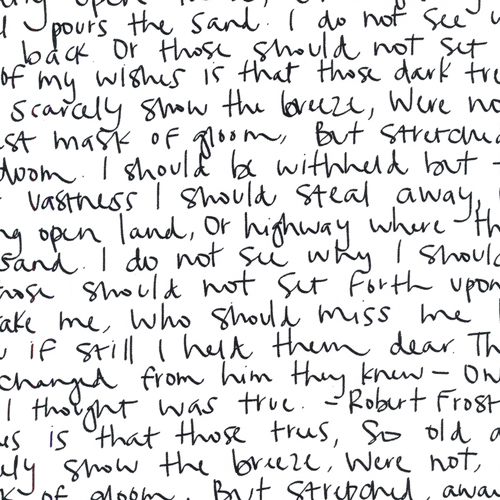 pours the sand. I do not see
back Or those should not set
of my wishes is that those dark
scarcely show the breeze, Were
mask of gloom, But stretched
doom. I should be withheld but
vastness I should steal away,
open land, Or highway where
sand. I do not see why I should
should not set forth upon
me, who should miss me
if still I held them dear. Th
changed from him they knew - On
I thought was true. - Robert Frost
is that those trees, So old
show the breeze, Were not,
of gloom, But stretched away